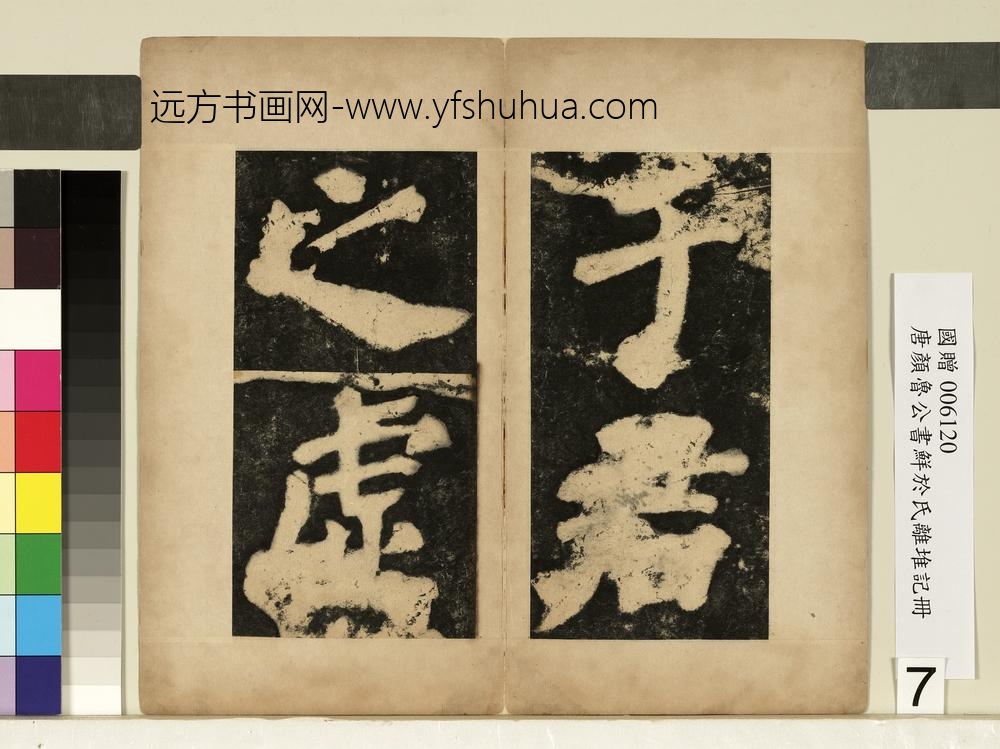 远方书画网-www.yfshuhua.com
于君
之虚
國贈 006120
唐顏魯公書鮮於氏離堆記冊
7